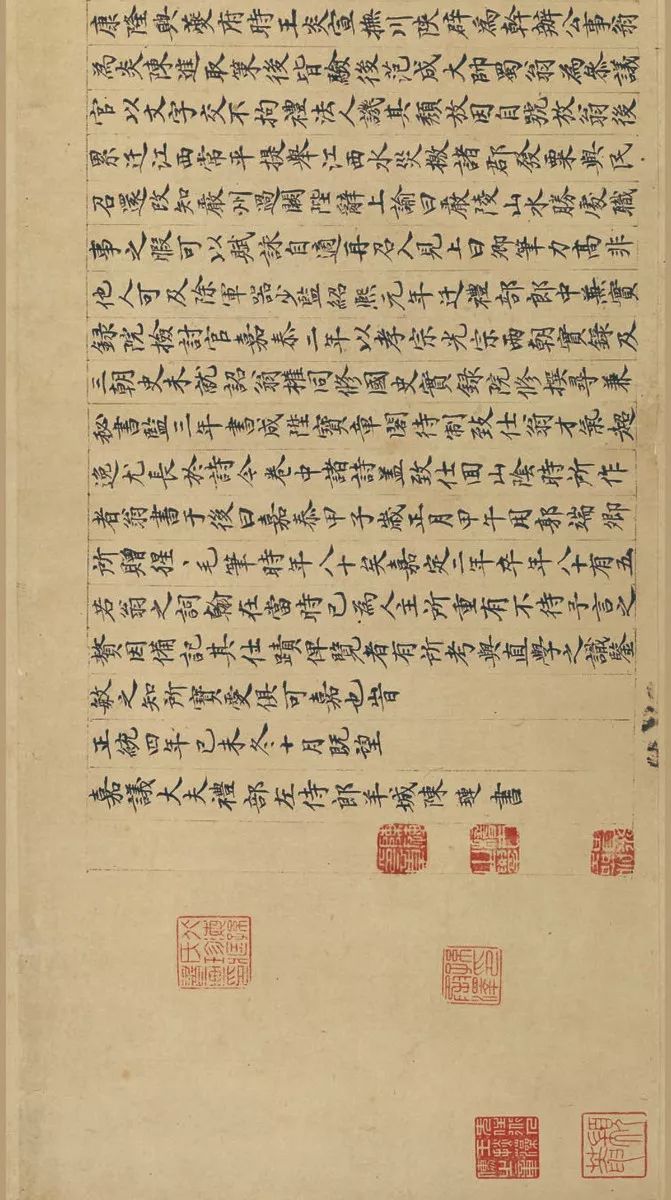 康隆興夔府時王炎宣撫川陝辟為幹辦公事翁
為炎陳進取策後皆驗後范成大帥蜀翁為叅議
官以文字交不拘禮法人譏其頹放因自號放翁後
累迁江西常平提舉江西水災檄諸郡發粟與民
召還改知嚴州過闕陛辭上諭曰嚴陵山水勝處職
事之暇可以賦詠自適再召入見上曰卿筆力髙非
他人可及除軍噐少監紹熙元年迁禮部郎中兼實
録院檢討官嘉泰二年以孝宗光宗兩朝實錄及
三朝史未就詔翁權同修國史實錄院修撰尋兼
秘書監三年書成陞寶章閣待制致仕翁才氣超
逸尤長於詩今卷中諸詩盖致仕囬山陰時所作
者翁書于後曰嘉泰甲子歲正月甲午用郭端卿
所贈猩〻毛筆時年八十矣嘉定二年卒年八十有五
若翁之詞翰在當時已為人主所重有不待予言之
贅因備記其仕蹟俾覽者有所考與直學之識鑒
敏之知所寶愛俱可嘉也旹
正統四年己未冬十月既望
嘉議大夫禮部左侍郎羊城陳璉書